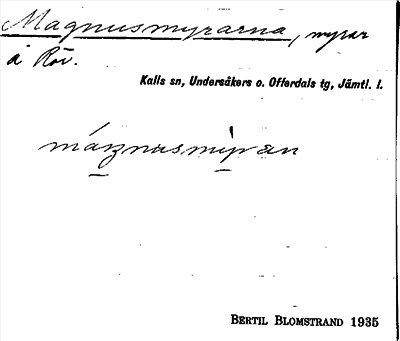 Magnusmyrarna, myrar
å Rör.
Kalls sn, Undersåkers o. Offerdals tg, Jämtl. l.
máŋnusmỳran
BERTIL BLOMSTRAND 1935